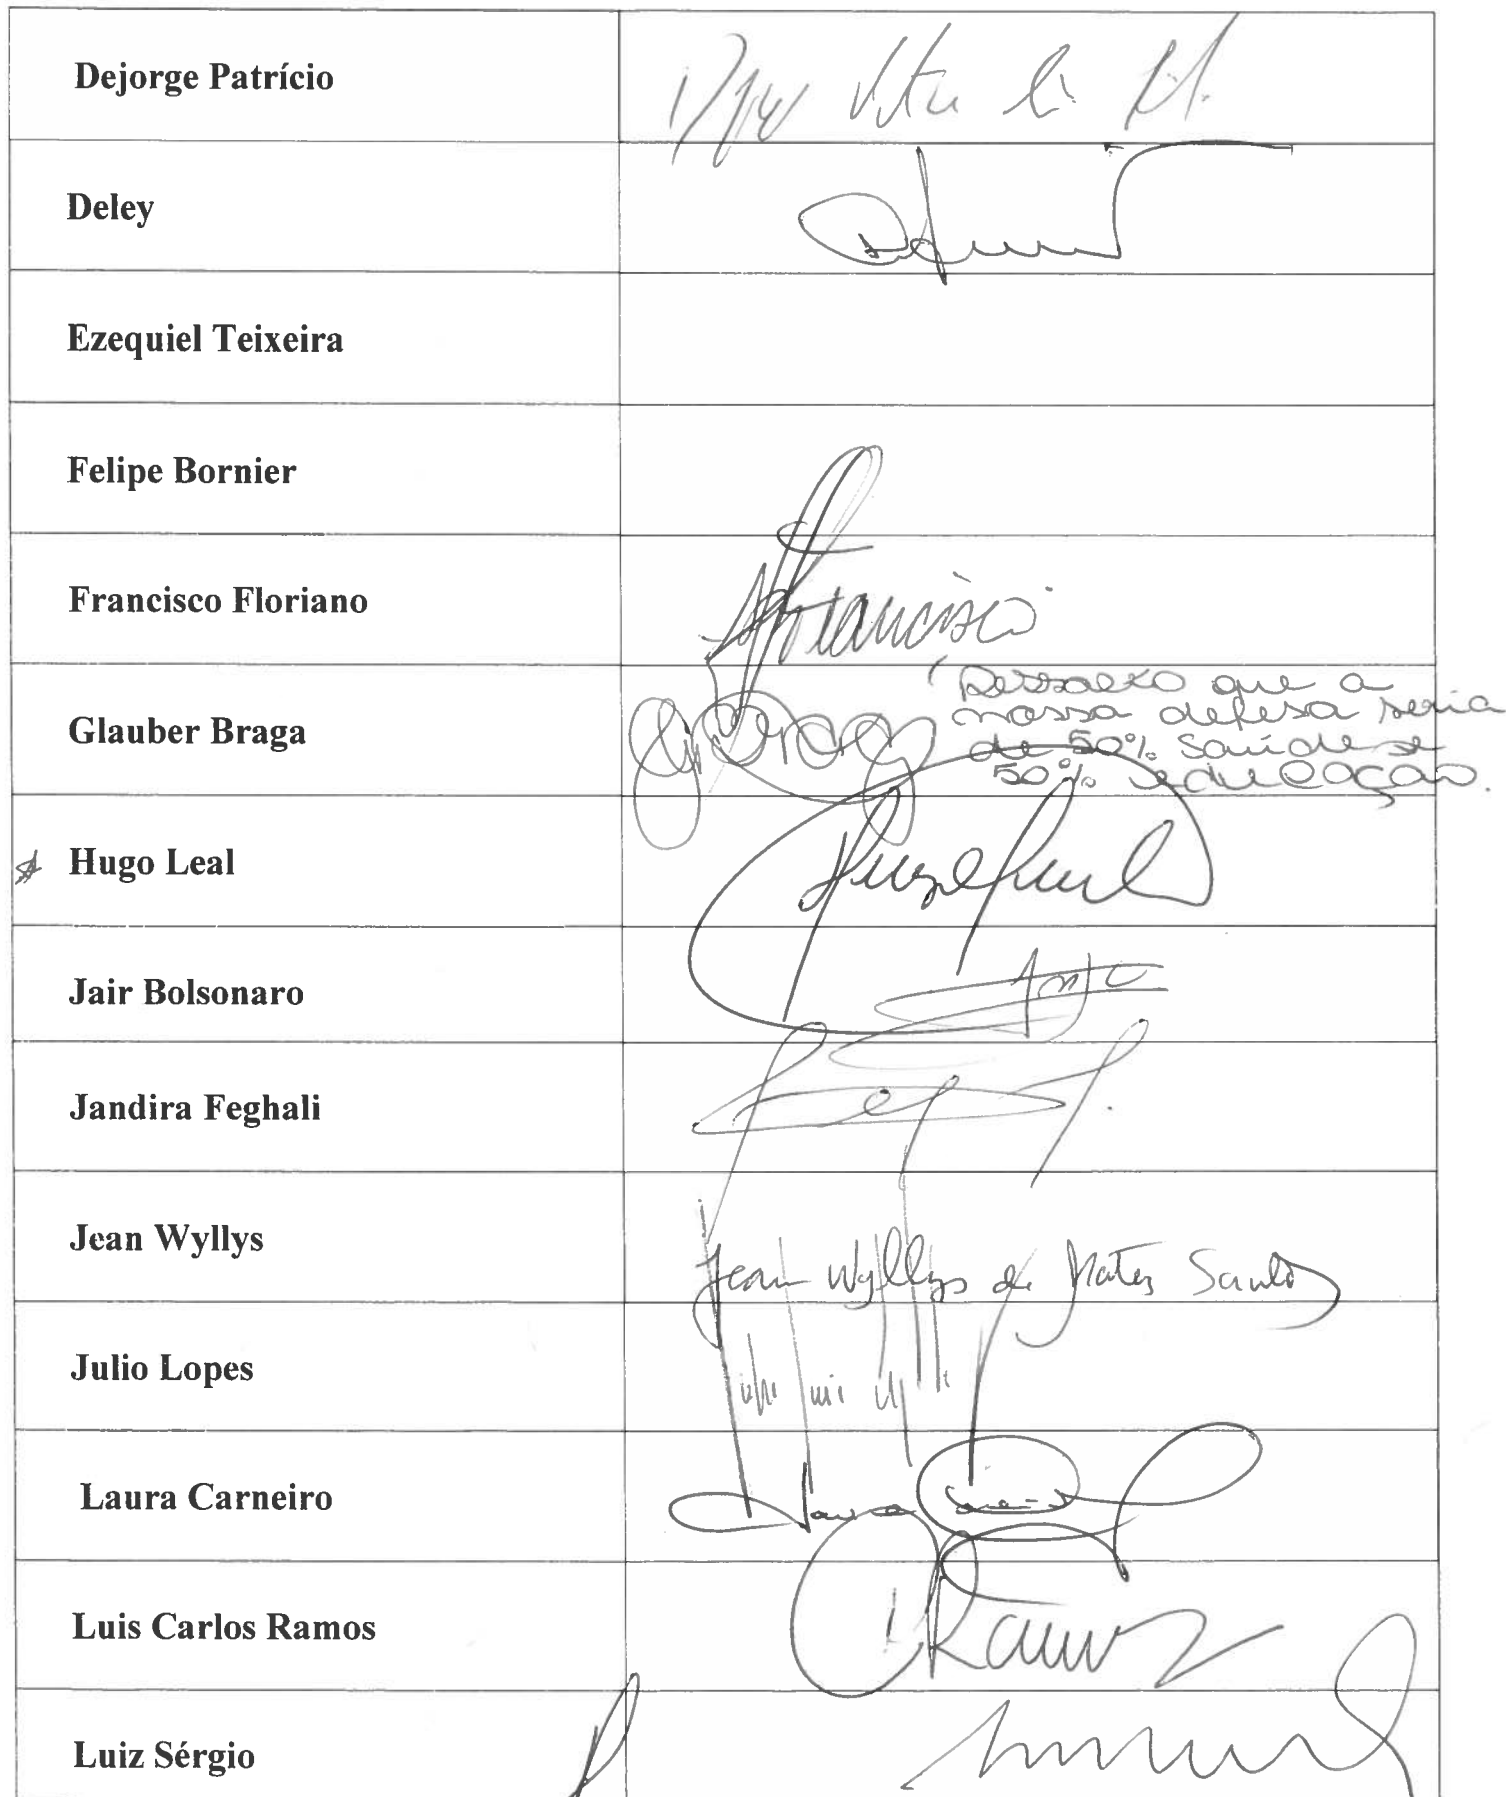 Dejorge Patrício
Deley
Ezequiel Teixeira
Felipe Bornier
Francisco Floriano
Francisco
Glauber Braga
Ressalto que a
nossa defesa seria
de 50% saúde e
50% educação.
Hugo Leal
Jair Bolsonaro
Jandira Feghali
Jean Wyllys
Jean Wyllys de Matos Santos
Julio Lopes
Laura Carneiro
Laura Carneiro
Luis Carlos Ramos
Ramos
Luiz Sérgio